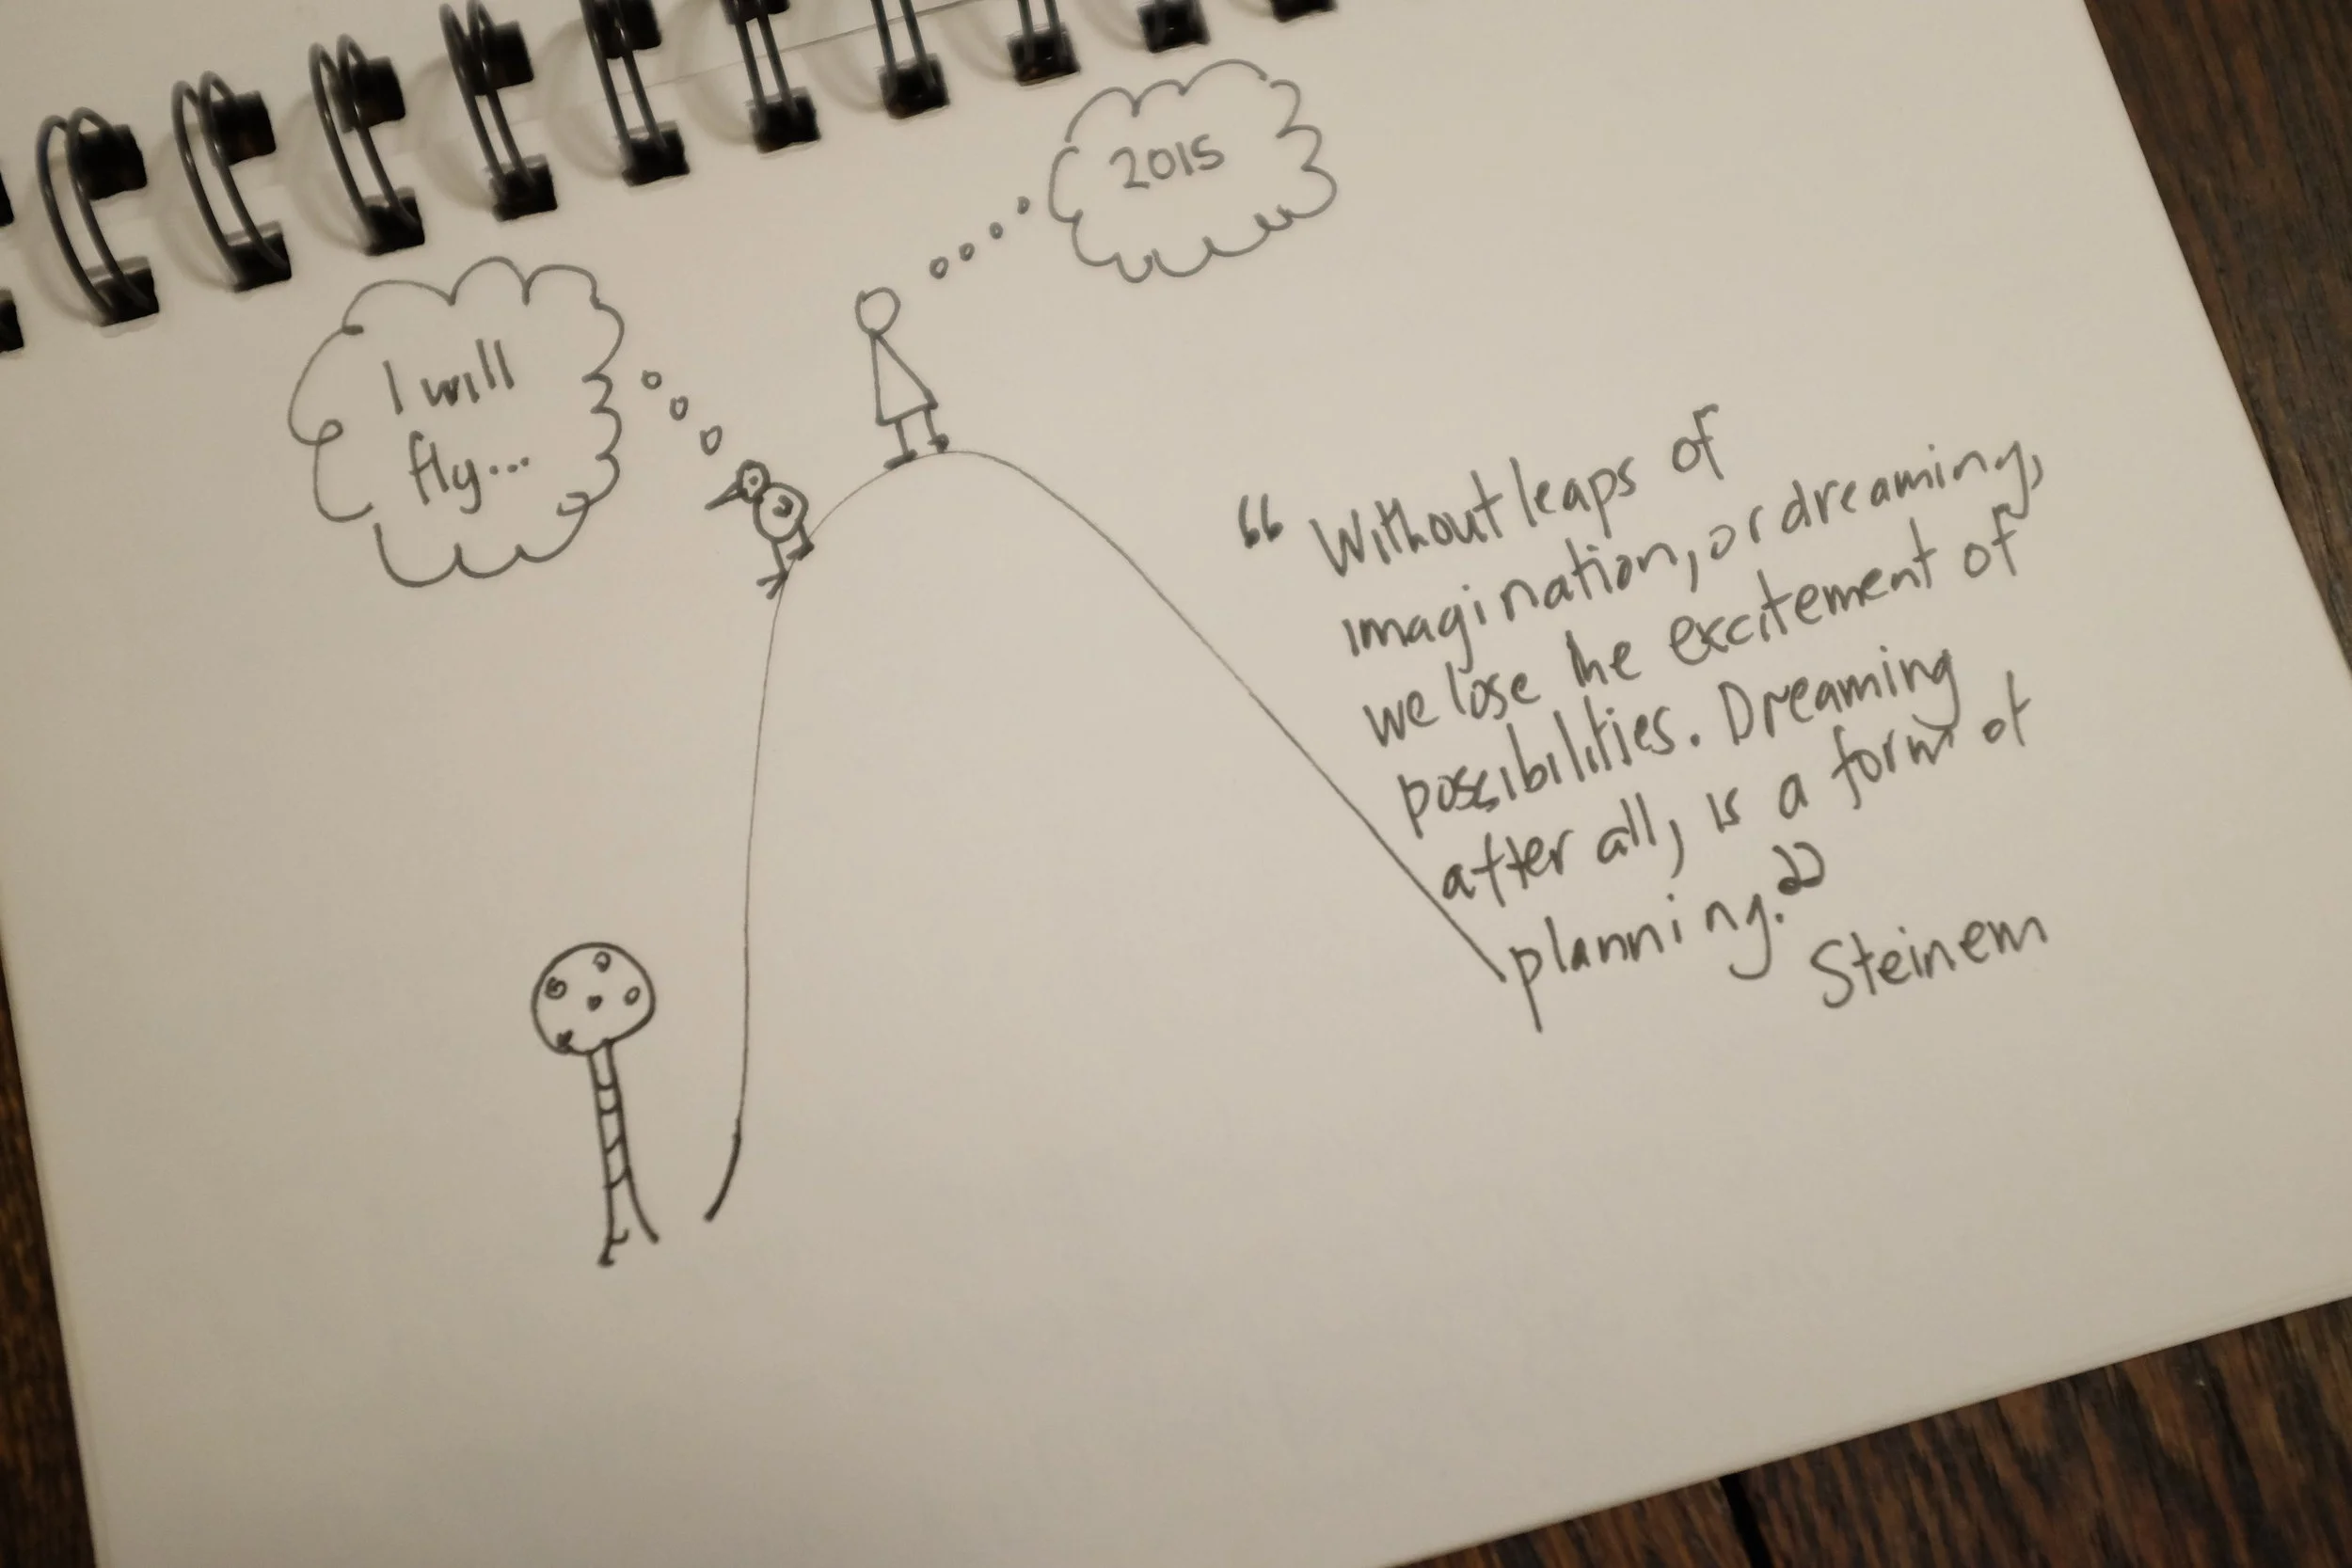 2015
I will
fly...
"Without leaps of
imagination, or dreaming,
we lose the excitement of
possibilities. Dreaming
after all, is a form of
planning."
Steinem